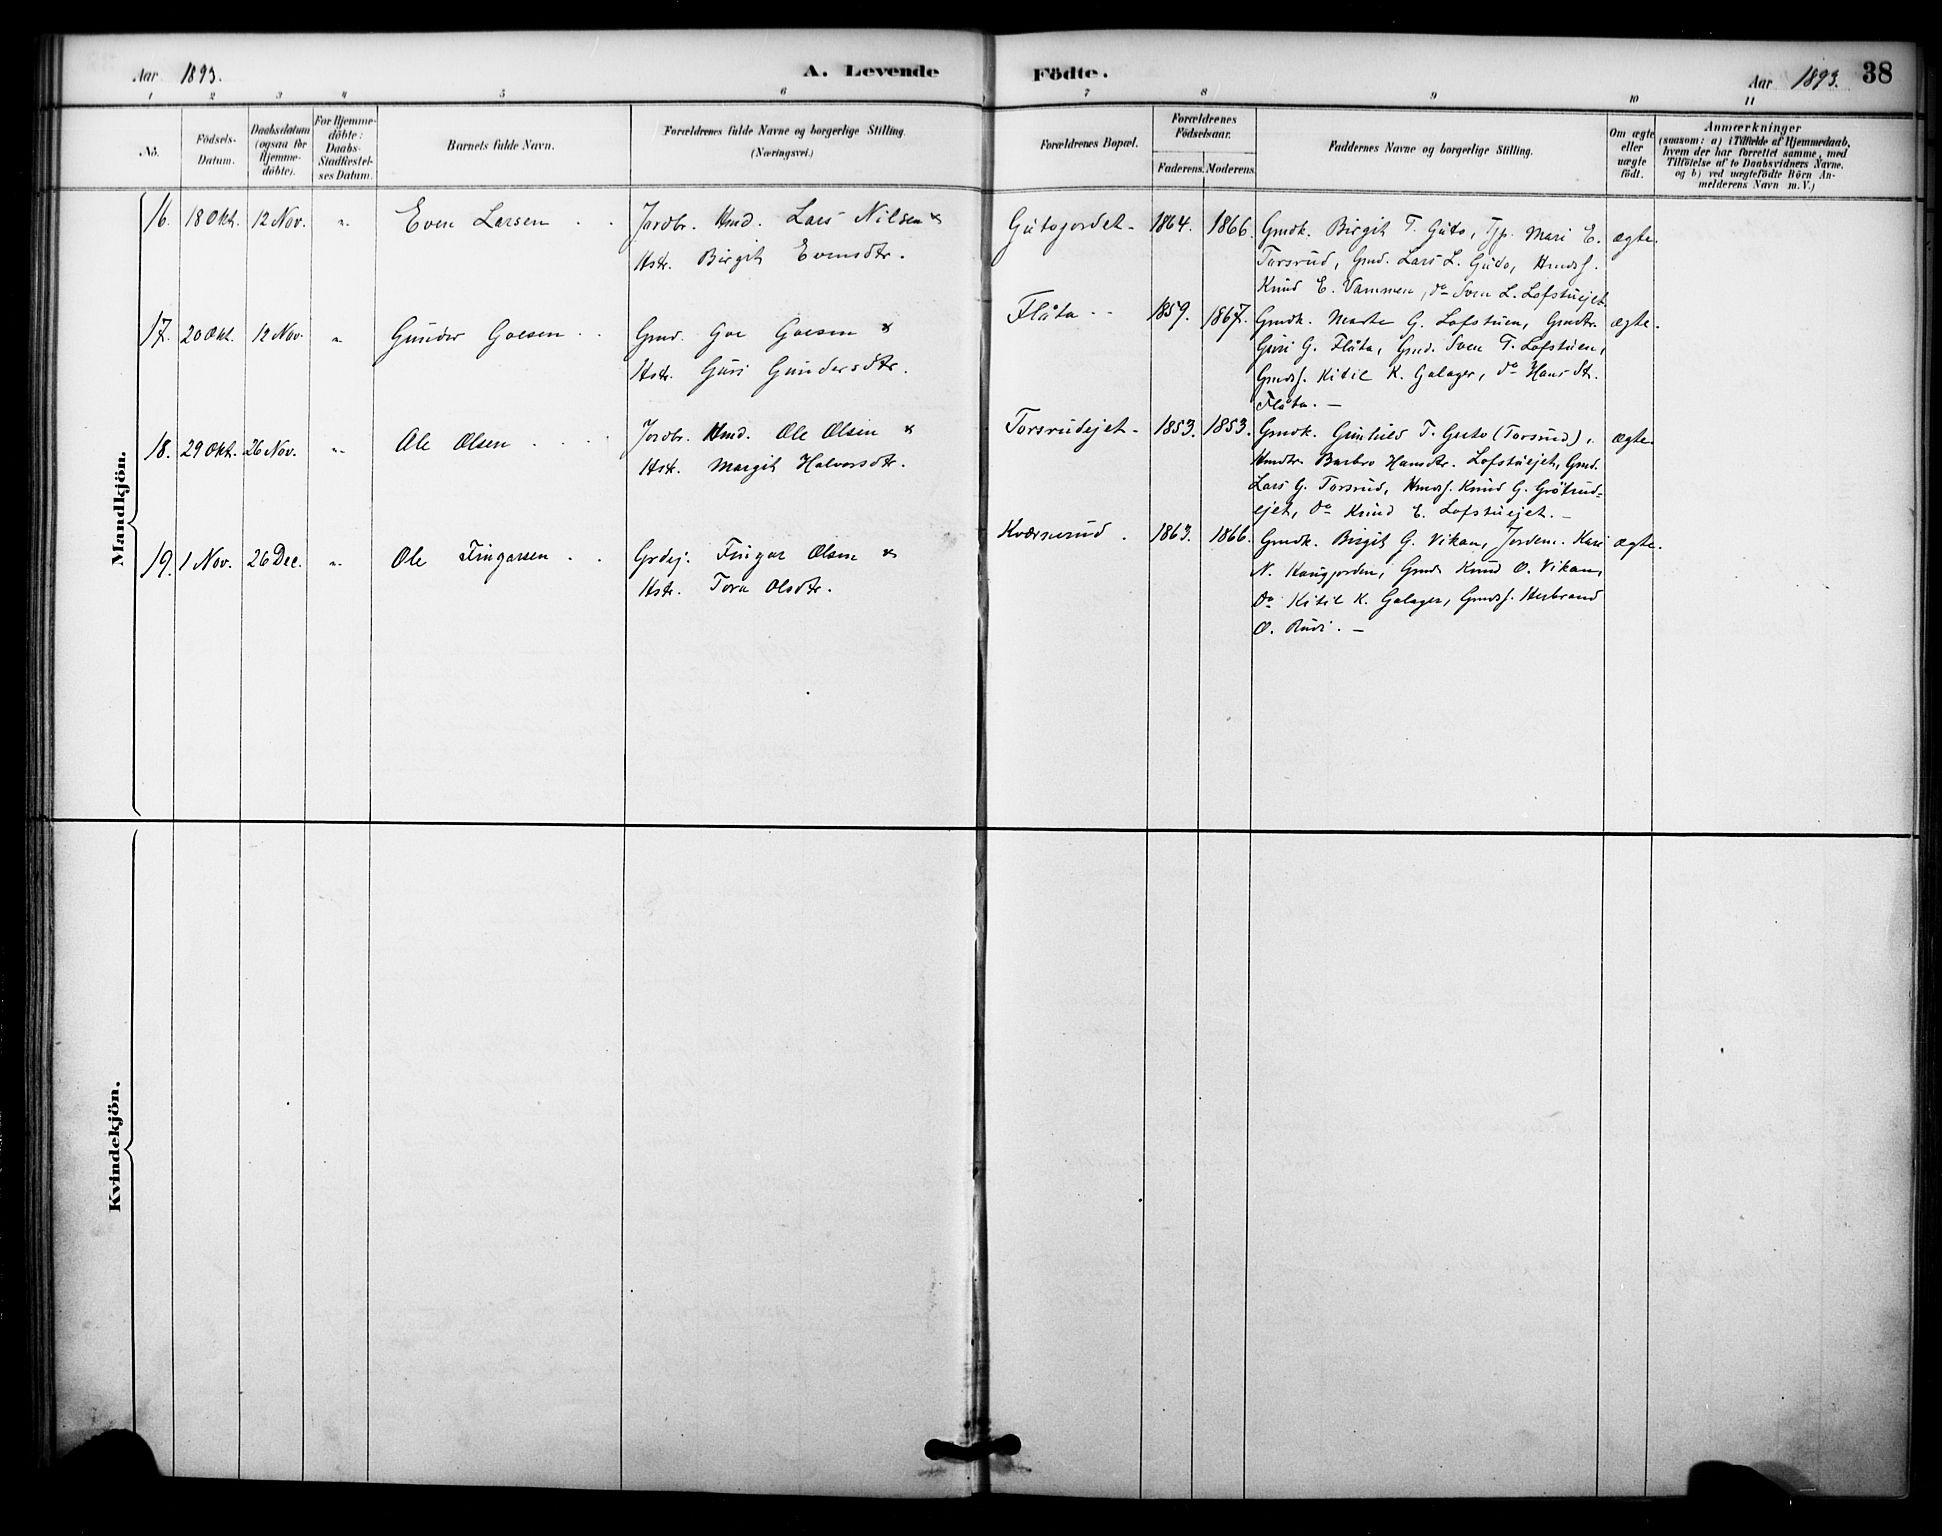 Aar 1893.
A. Levende Födte.
Aar 1893. 38
1 2 3 4 5 6 7 8 9 10 11
No.
Födsels-
Datum.
Daabsdatum
(ogsaa for
Hjemme-
döbte).
For Hjemme-
döbte:
Daabs-
Stadfæstel-
ses Datum.
Barnets fulde Navn.
Forældrenes fulde Navne og borgerlige Stilling.
(Næringsvei.)
Forældrenes Bopæl.
Forældrenes
Födselsaar.
Faderens. Moderens.
Faddernes Navne og borgerlige Stilling.
Om ægte
eller
uægte
födt.
Anmærkninger
(saasom: a) i Tilfælde af Hjemmedaab,
hvem der har forrettet samme, med
Tilföielse af to Daabsvidners Navne.
og b) ved uægtefödte Börn An-
melderens Navn m. V.)
Mandkjön.
16. 18 Okt. 12 Nov. " Even Larsen . . Jordbr. Hmd. Lars Nilsen &
Hstr. Birgit Evensdtr.
Gutogjordet - 1864. 1866. Gmdk. Birgit T. Guto, Tjp. Mari E. ægte.
Torsrud, Gmd. Lars L. Guto, Hmdsf.
Knud E. Vammen, do Sven L. Lofstuejet
17. 20 Okt. 12 Nov. " Gunder Goesen . . Gmd. Goe Goesen &
Hstr. Guri Gundersdtr.
Flåta - - 1859. 1867. Gmdk. Marte G. Lofstuen, Gmdtr. ægte.
Guri G. Flåta, Gmd. Sven T. Lofstuen,
Gmdsf. Kitil K. Golager, do Hans St.
Flåta. —
18. 29 Okt. 26 Nov. " Ole Olsen . . . . Jordbr. Hmd. Ole Olsen &
Hstr. Margit Halvorsdtr.
Torsrudejet - 1853. 1853. Gmdk. Gunhild T. Guto (Torsrud), ægte.
Hmdtr. Barbro Hansdtr. Lofstuejet, Gmd.
Lars G. Torsrud, Hmdsf. Knud G. Grötrud-
ejet, do Knud E. Lofstuejet. —
19. 1 Nov. 26 Dec. " Ole Fingarsen . . Grdej. Fingar Olsen &
Hstr. Tora Olsdtr.
Kværnerud . 1863. 1866. Gmdk. Birgit G. Vikan, Jordem. Kari ægte.
N. Haugjorden, Gmd. Knud O. Vikan,
do Kitil K. Golager, Gmdsf. Herbrand
O. Rudi. —
Kvindekjön.